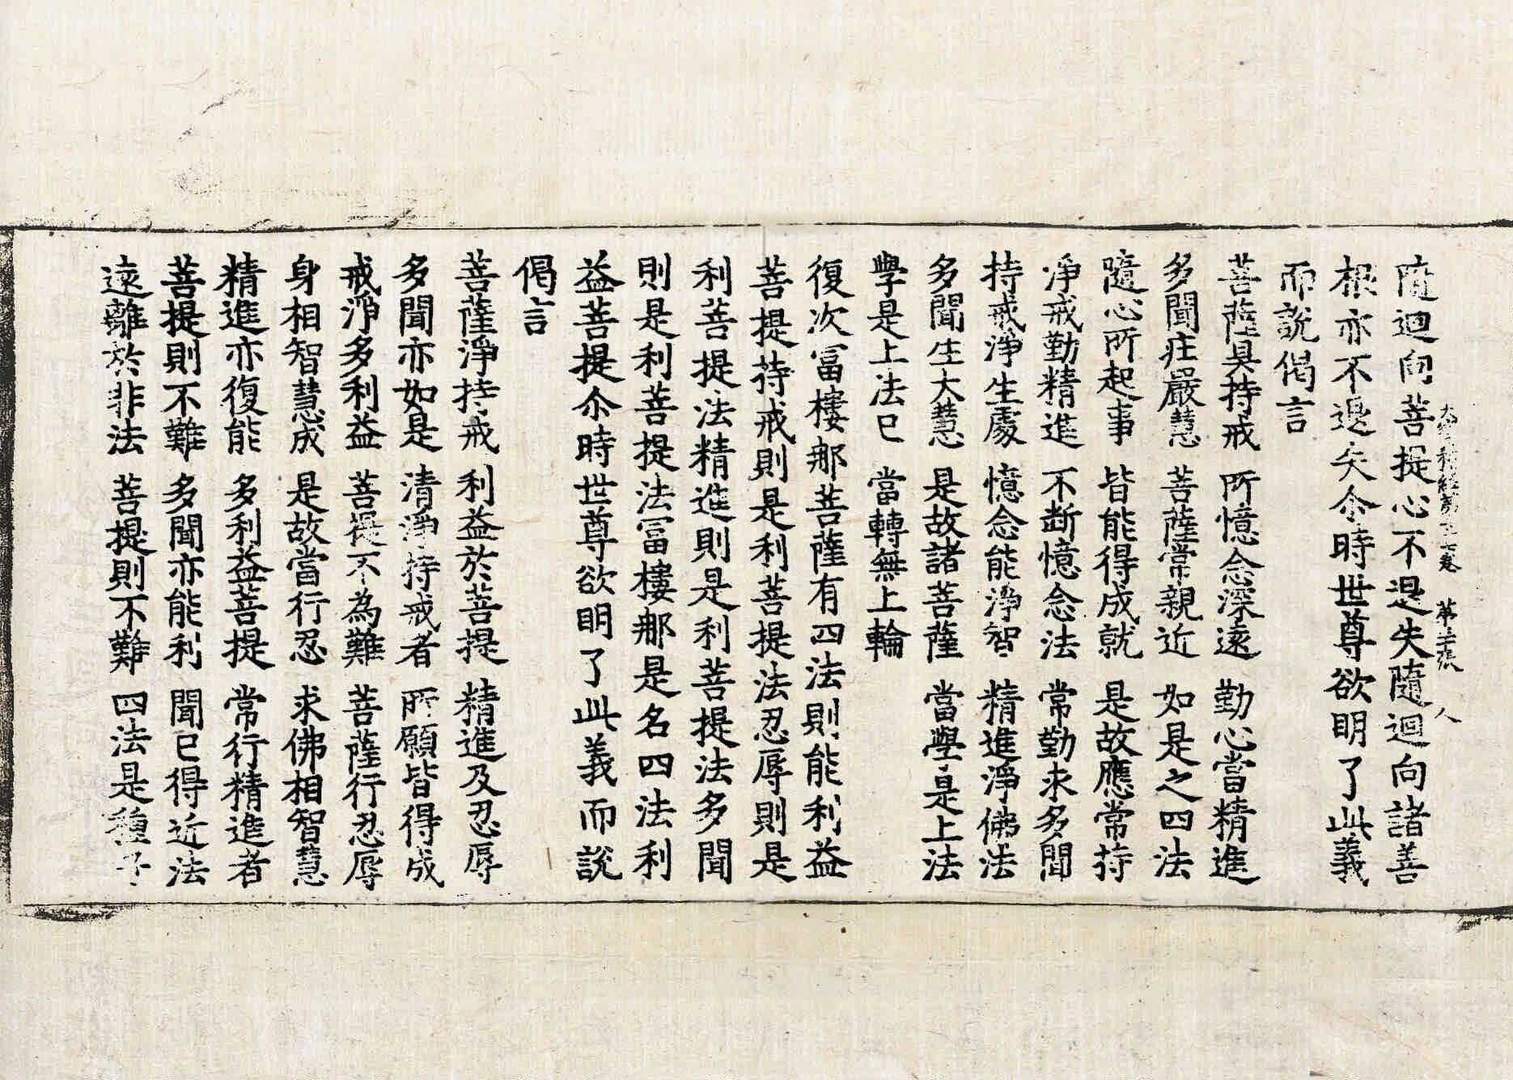 大寶積經第七十七卷　第二張　人
隨迴向菩提心不退失隨迴向諸善
根亦不退失尒時世尊欲明了此義
而說偈言
菩薩具持戒　所憶念深遠　勤心當精進
多聞庄嚴慧　菩薩常親近　如是之四法
隨心所起事　皆能得成就　是故應常持
淨戒勤精進　不断憶念法　常勤求多聞
持戒淨生處　憶念能淨智　精進淨佛法
多聞生大慧　是故諸菩薩　當學是上法
學是上法已　當轉無上輪
復次冨樓那菩薩有四法則能利益
菩提持戒則是利菩提法忍辱則是
利菩提法精進則是利菩提法多聞
則是利菩提法冨樓那是名四法利
益菩提尒時世尊欲明了此義而說
偈言
菩薩淨持戒　利益於菩提　精進及忍辱
多聞亦如是　清淨持戒者　所願皆得成
戒淨多利益　菩提不為難　菩薩行忍辱
身相智慧成　是故當行忍　求佛相智慧
精進亦復能　多利益菩提　常行精進者
菩提則不難　多聞亦能利　聞已得近法
遠離於非法　菩提則不難　四法是種子